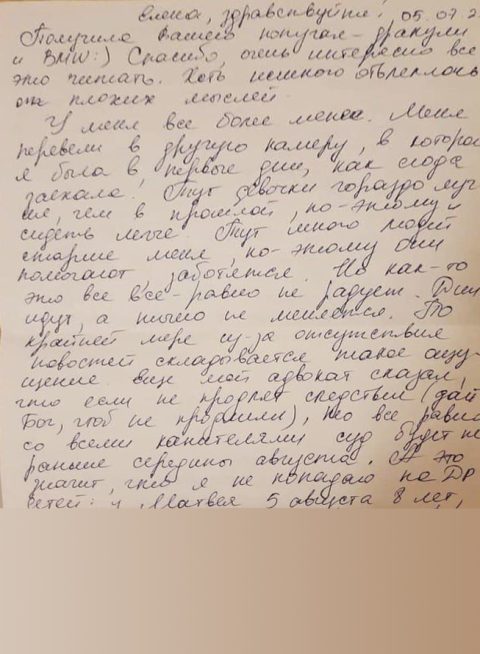 Елена, здравствуйте! 05.07.2
Получила Вашего попугая-дракули
и BMW:) Спасибо, очень интересно все
это читать. Хоть немного отвлеклась
от плохих мыслей.
У меня все более менее. Меня
перевели в другую камеру, в которой
я была в первые дни, как сюда
заехала. Тут девочки гораздо луч
ше, чем в прошлой, по-этому и
сидеть легче. Тут много людей
старше меня, по-этому они
помогают, заботятся. Но как-то
это все все-равно не радует. Дни
идут, а ничего не меняется. По
крайней мере из-за отсутствия
новостей складывается такое ощу-
щение. Еще мой адвокат сказал,
что если не продлят следствие (дай
Бог, чтоб не продлили), то все равно
со всеми канителями суд будет не
раньше середины августа. А это
значит, что я не попадаю на ДР
детей: у Матвея 5 августа 8 лет,